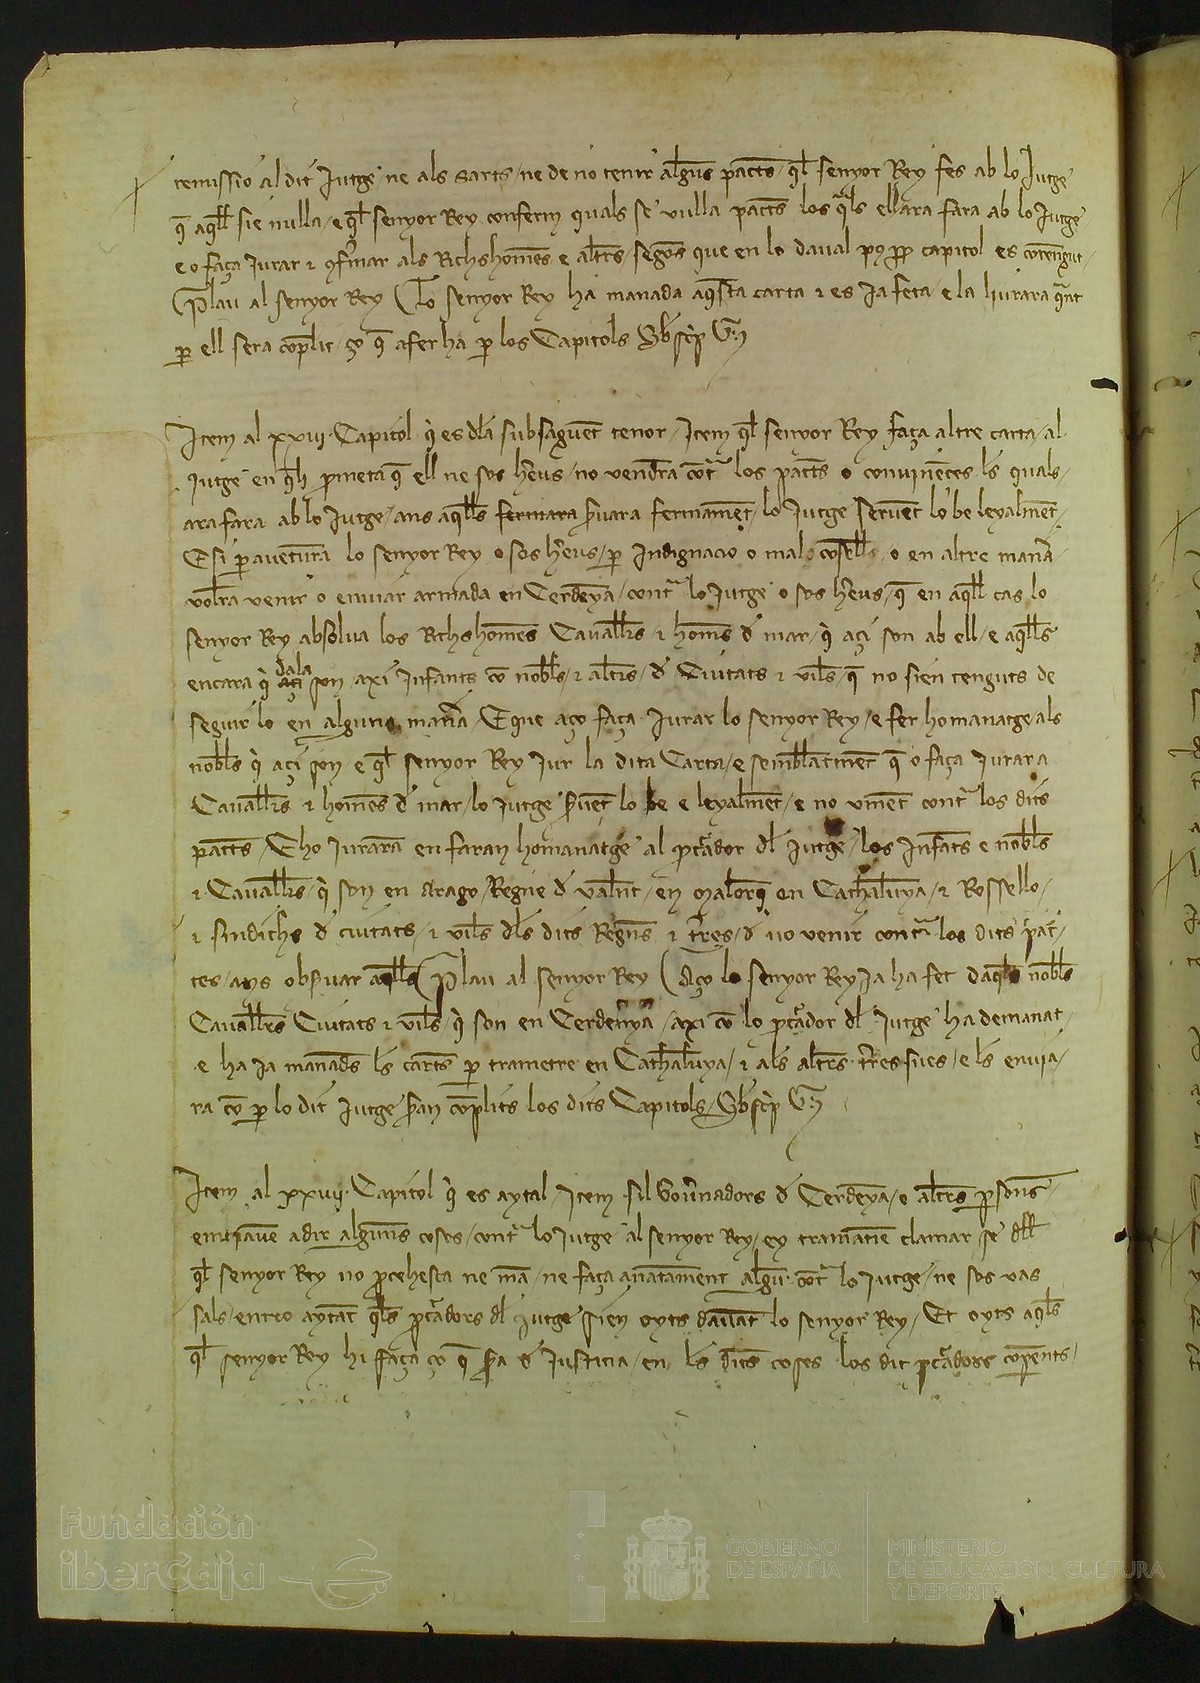 remissio al dit Jutge / ne als sarts / ne de no tenir algũs pactes / q̃l senyor Rey fes ab lo Jutge
q̃ aq̃ll sie nulla / e q̃l senyor Rey conferm quals se vulla pactes los q̃ls ell ara fara ab lo Jutge
e o faça Jurar ⁊ ꝯfmar als Richshomẽs e alt̃s / segõs que en lo daual capitol es cõtengut /
Plau al senyor Rey Lo senyor Rey ha manada aq̃sta carta ⁊ es ja feta / e la liurara q̃nt
ꝑ ell sera cõplit / ço q̃ a fer ha ꝑ los Capitols
Item al xxviij Capitol q̃ es dla subsaguẽt tenor / Item q̃l senyor Rey faça altre carta / al
Jutge en q̃ li ꝓmeta q̃ ell ne sos hẽus / no vendra cõt̃ los pactes o conuinẽces ls quals /
ara fara ab lo Jutge / ans aq̃lls fermara s̃uara fermamẽt / lo Jutge seruẽt lo be leyalmẽt /
E si ꝑ auentura lo senyor Rey o sos hẽus / ꝑ Indignacio o mal cõsell / o en altre maña
volra venir o enuiar armada en Cerdeya / cont̃ lo Jutge o sos hẽus / q̃ en aq̃ll cas lo
senyor Rey absolua los Richshomẽs Cauall̃s ⁊ homẽs d mar / q̃ açi son ab ell / e aq̃lls
encara q̃ açi dala son / axi Infants cõ nobl̃s / ⁊ alt̃s / d Ciutats ⁊ vil̃s / q̃ no sien tenguts de
seguir lo en alguna maña / E que aço faça Jurar lo senyor Rey / e fer homanatge / als
nobl̃s q̃ açi son e q̃l senyor Rey Jur la dita Carta / e semblatmẽt q̃ o faça Jurar a
Cauall̃s ⁊ homẽs d mar / lo Jutge s̃uẽt lo be e leyalmẽt / e no vinẽt cont̃ los dits
pactes / E ho Juraran en faran homanatge al ꝓc̃ador dl Jutge / los Infãts e nobl̃s
⁊ Cauall̃s / q̃ son en Arago / Regne d Valẽt / en Malorq̃ en Cathaluya / ⁊ Rossello /
⁊ sindichs d ciutats / ⁊ vil̃s dls dits Regñs ⁊ t̃res / d no venir cont̃ los dits pac /
tes / ans obs̃uar aq̃lls Plau al senyor Rey Aço lo senyor Rey ja ha fet daq̃ls nobl̃s
Cauall̃s Ciutats ⁊ vil̃s / q̃ son en Cerdenya / axi cõ lo ꝓc̃ador dl Jutge ha demanat /
e ha ja manads ls cart̃s ꝑ trametre en Cathaluya / ⁊ als alt̃s t̃res sues / e ls enuia /
ra cõ ꝑ lo dit Jutge s̃an cõplits los dits Capitols /
Item al xxviij Capitol q̃ es aytal / Item sil Gou̾nadors d Cerdeya / e alt̃s ꝑsoñs
enuiauẽ a dir algunes coses / cont̃ lo Jutge al senyor Rey / ey tramatiẽ clamar se dll
q̃l senyor Rey no ꝓcehesca ne mã / ne faça anãtament algũ cõt̃ lo Jutge / ne sos vas
sals / entro aytãt q̃ls ꝓc̃adors dl Jutge sien oyts dauãt lo senyor Rey / Et oyts aq̃ls
q̃l senyor Rey hi faça ço q̃ s̃a d Justicia / en ls dits coses los dit ꝓc̃adors